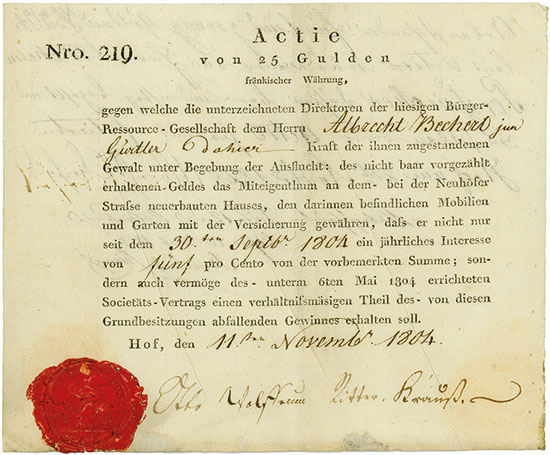 Nro. 219.
Actie
von 25 Gulden
fränkischer Währung,
gegen welche die unterzeichneten Direktoren der hiesigen Bürger-
Ressource-Gesellschaft dem Herrn Albrecht Bechert jun
Gürtler dahier Kraft der ihnen zugestandenen
Gewalt unter Begebung der Ausflucht: des nicht baar vorgezählt
erhaltenen-Geldes das Miteigenthum an dem-bei der Neuhöfer
Strasse neuerbauten Hauses, den darinnen befindlichen Mobilien
und Garten mit der Versicherung gewähren, dass er nicht nur
seit dem 30.ten Septbr 1804 ein jährliches Interesse
von fünf pro Cento von der vorbemerkten Summe; son-
dern auch vermöge des-unterm 6ten Mai 1804 errichteten
Societäts-Vertrags einen verhältnifsmäsigen Theil des-von diesen
Grundbesitzungen abfallenden Gewinnes erhalten soll.
Hof, den 11ten Novembr 1804.
Otto Wolfrum Ritter. Krauß.